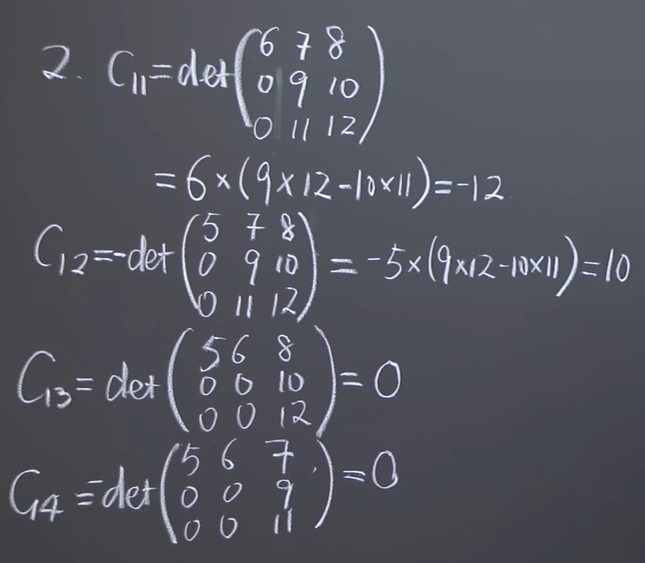 2. C₁₁=det(6 7 8
0 9 10
0 11 12)
=6×(9×12-10×11)=-12
C₁₂=-det(5 7 8
0 9 10
0 11 12) = -5×(9×12-10×11)=10
C₁₃=det(5 6 8
0 0 10
0 0 12)=0
C₁₄=-det(5 6 7
0 0 9
0 0 11)=0